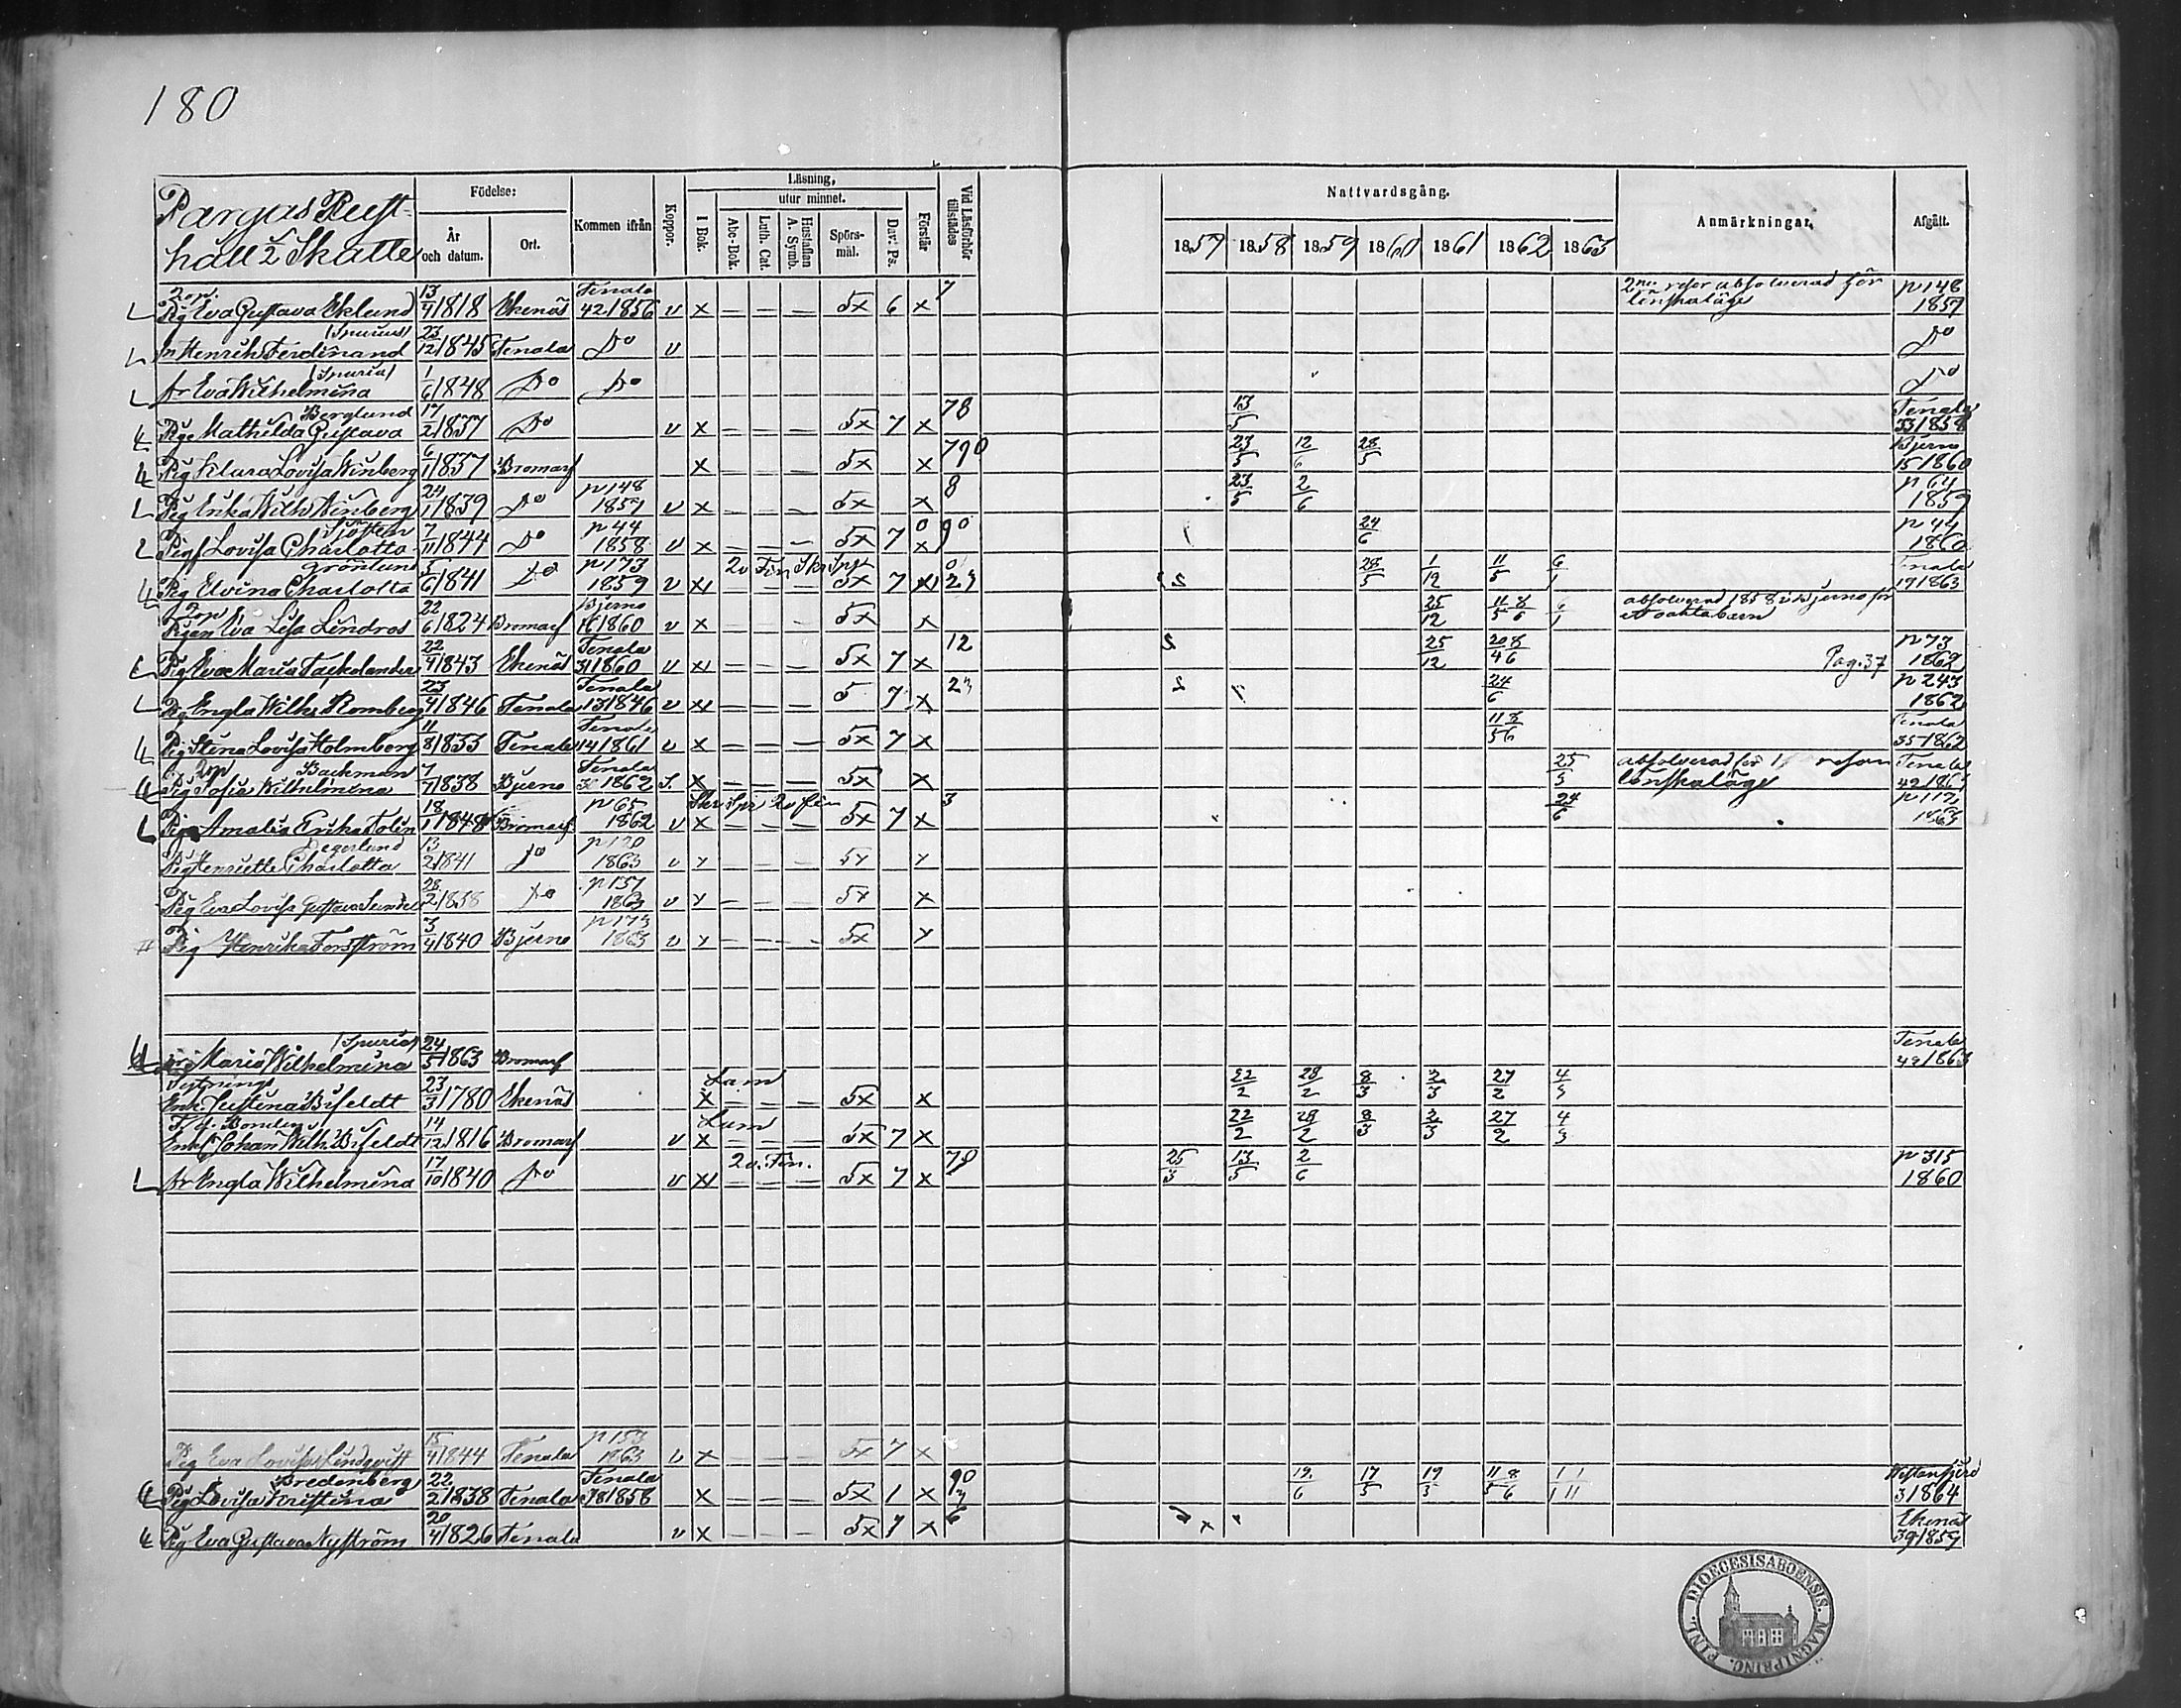 180
Pargas Rust-
håll 2 Skatte
Födelse:
År och datum.
Ort.
Kommen ifrån
Koppor.
Läsning,
I Bok.
utur minnet.
Abc-Bok.
Luth. Cat.
Hustaflan A. Symb.
Spörs-mål.
Dav: Ps.
Förstår
Vid Läsförhör tillstädes
Nattvardsgång.
1857 1858 1859 1860 1861 1862 1863
Anmärkningar,
Afgått.
Pig Eva Gustava Eklund 13/4 1818 Ekenäs Tenala 42 1856 v x — — — 5x 6 x 7 absolverad för lönskaläge p 148 1857
Sn Henrik Ferdinand (Spurius) 23/12 1845 Tenala Do v Do
Dr Eva Wilhelmina (Spuria) 1/6 1848 Do Do Do
Pig Mathilda Gustava Berglund 17/2 1837 Do v x — — — 5x 7 x 78 13/5 Tenala 33 1858
Pig Klara Lovisa Winberg 6/1 1837 Bromarf x — — — 5x x 790 23/5 12/6 28/5 Bjerno 15 1860
Pig Erika Wilh. Winberg 24/1 1839 Do p 148 1857 v x — — — 5x x 8 23/5 2/6 p 64 1859
Pig Lovisa Charlotta 7/11 1844 Do p 44 1858 v x — — — 5x 7 x 90 24/6 p 44 1860
Pig Elvina Charlotta Grönlund 5/6 1841 Do p 173 1859 v x — — — 5x 7 x 28/5 1/12 11/5 6/1 Tenala 19 1863
Pigan Eva Lisa Lindros 22/6 1824 Bromarf Bjerno 16 1860 v x — — — 5x x 25/12 11/5 8/6 6/1 absolverad 1858 i Bjerno för ett oäkta barn
Pig Eva Maria Tackolander 22/4 1843 Ekenäs Tenala 31 1860 v x — — — 5x 7 x 12 25/12 20/4 8/6 Pag. 37 p 73 1862
Pig Engla Wilh. Romberg 23/4 1846 Tenala Tenala 13 1846 v x — — — 5 7 x 23 24/6 p 243 1862
Pig Stina Lovisa Holmberg 11/8 1833 Tenala Tenala 14 1861 v x — — — 5x 7 x 11/5 8/6 Tenala 35 1862
Pig Sofia Wilhelmina Backman 7/7 1838 Bjerno Tenala 1862 S. x — — — 5x x 25/5 absolverad för lönskaläge Tenala
Pig Amalia Erika Tolin 18/1 1848 Bromarf p 65 1862 v x — — — 5x 7 x 3 24/6
Pig Henriette Charlotta Degerlund 13/2 1841 Do p 120 1863 v x — — — 5x x
Pig Eva Lovisa Gustava 28/2 1838 Do p 157 1863 v x — — — 5x x
Pig Henrika Forsström 3/4 1840 Bjerno 1863 v x — — — 5x x
Maria Wilhelmina (Spuria) 24/5 1863 Bromarf Tenala 49 1863
Enk. Justina Bifeldt 23/3 1780 Ekenäs x 5x x 22/2 28/2 8/3 2/3 27/2 4/3
Johan Wilh. Bifeldt 14/12 1816 Bromarf v x — — — 5x 7 x 22/2 28/2 8/3 2/3 27/2 4/3
Dr Engla Wilhelmina 17/10 1840 Do v x — — — 5x 7 x 25/3 13/5 2/6 p 315 1860
Pig Eva Lovisa Lindqvist 15/4 1844 Tenala p 153 1863 v x — — — 5x 7 x
Pig Lovisa Kristina Bredenberg 22/2 1838 Tenala Tenala 1858 x — — — 5x 1 x 19/6 17/5 19/5 11/5 8/6 1/1 1/11 Westanfjerd 3 1864
Pig Eva Gustava Nyström 20/4 1826 Tenala v x — — — 5x 7 x 6 Ekenäs 39 1857
FINL. DIOECESIS ABOENSIS. MAGNI PRINC.